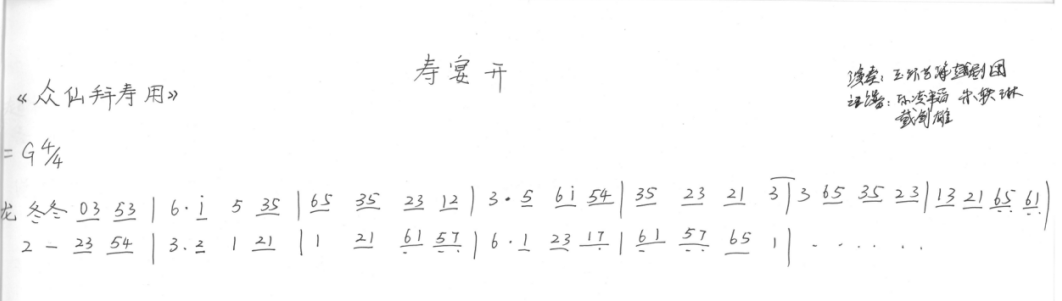 寿宴开
《众仙拜寿用》
演奏:
记谱:
= G 4/4
龙 冬冬 03 53 | 6· i 5 35 | 65 35 23 12 | 3· 5 6i 54 | 35 23 21 3 | 3 65 35 23 | 13 21 65 61 |
2 - 23 54 | 3. 2 1 21 | 1 21 61 57 | 6 · 1 23 17 | 61 57 65 1 | · · · · · ·